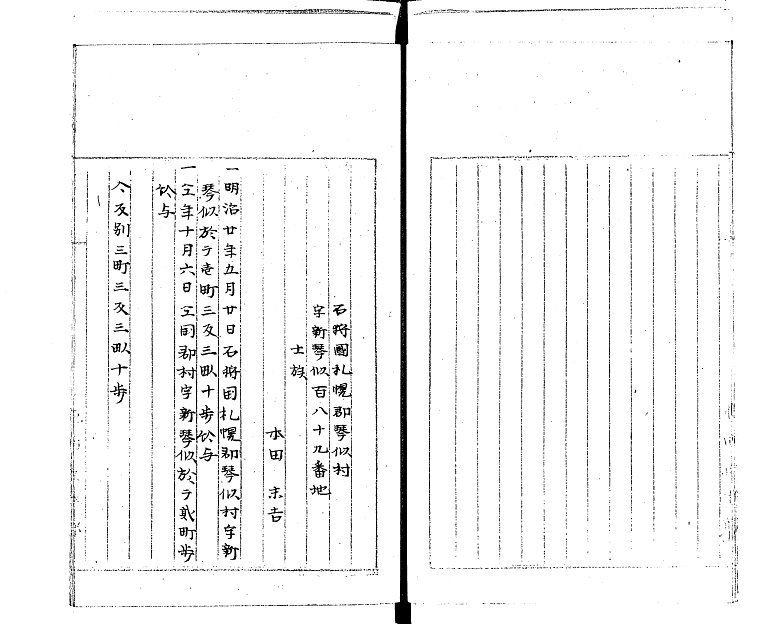 石狩國札幌郡琴似村
字新琴似百八十九番地
士族
本田末吉
一明治廿年五月廿日石狩国札幌郡琴似村字新
琴似於テ壱町三反三畝十歩給与
一仝年十月六日仝国郡村字新琴似於テ貮町歩
給与
〆反別三町三反三畝十歩